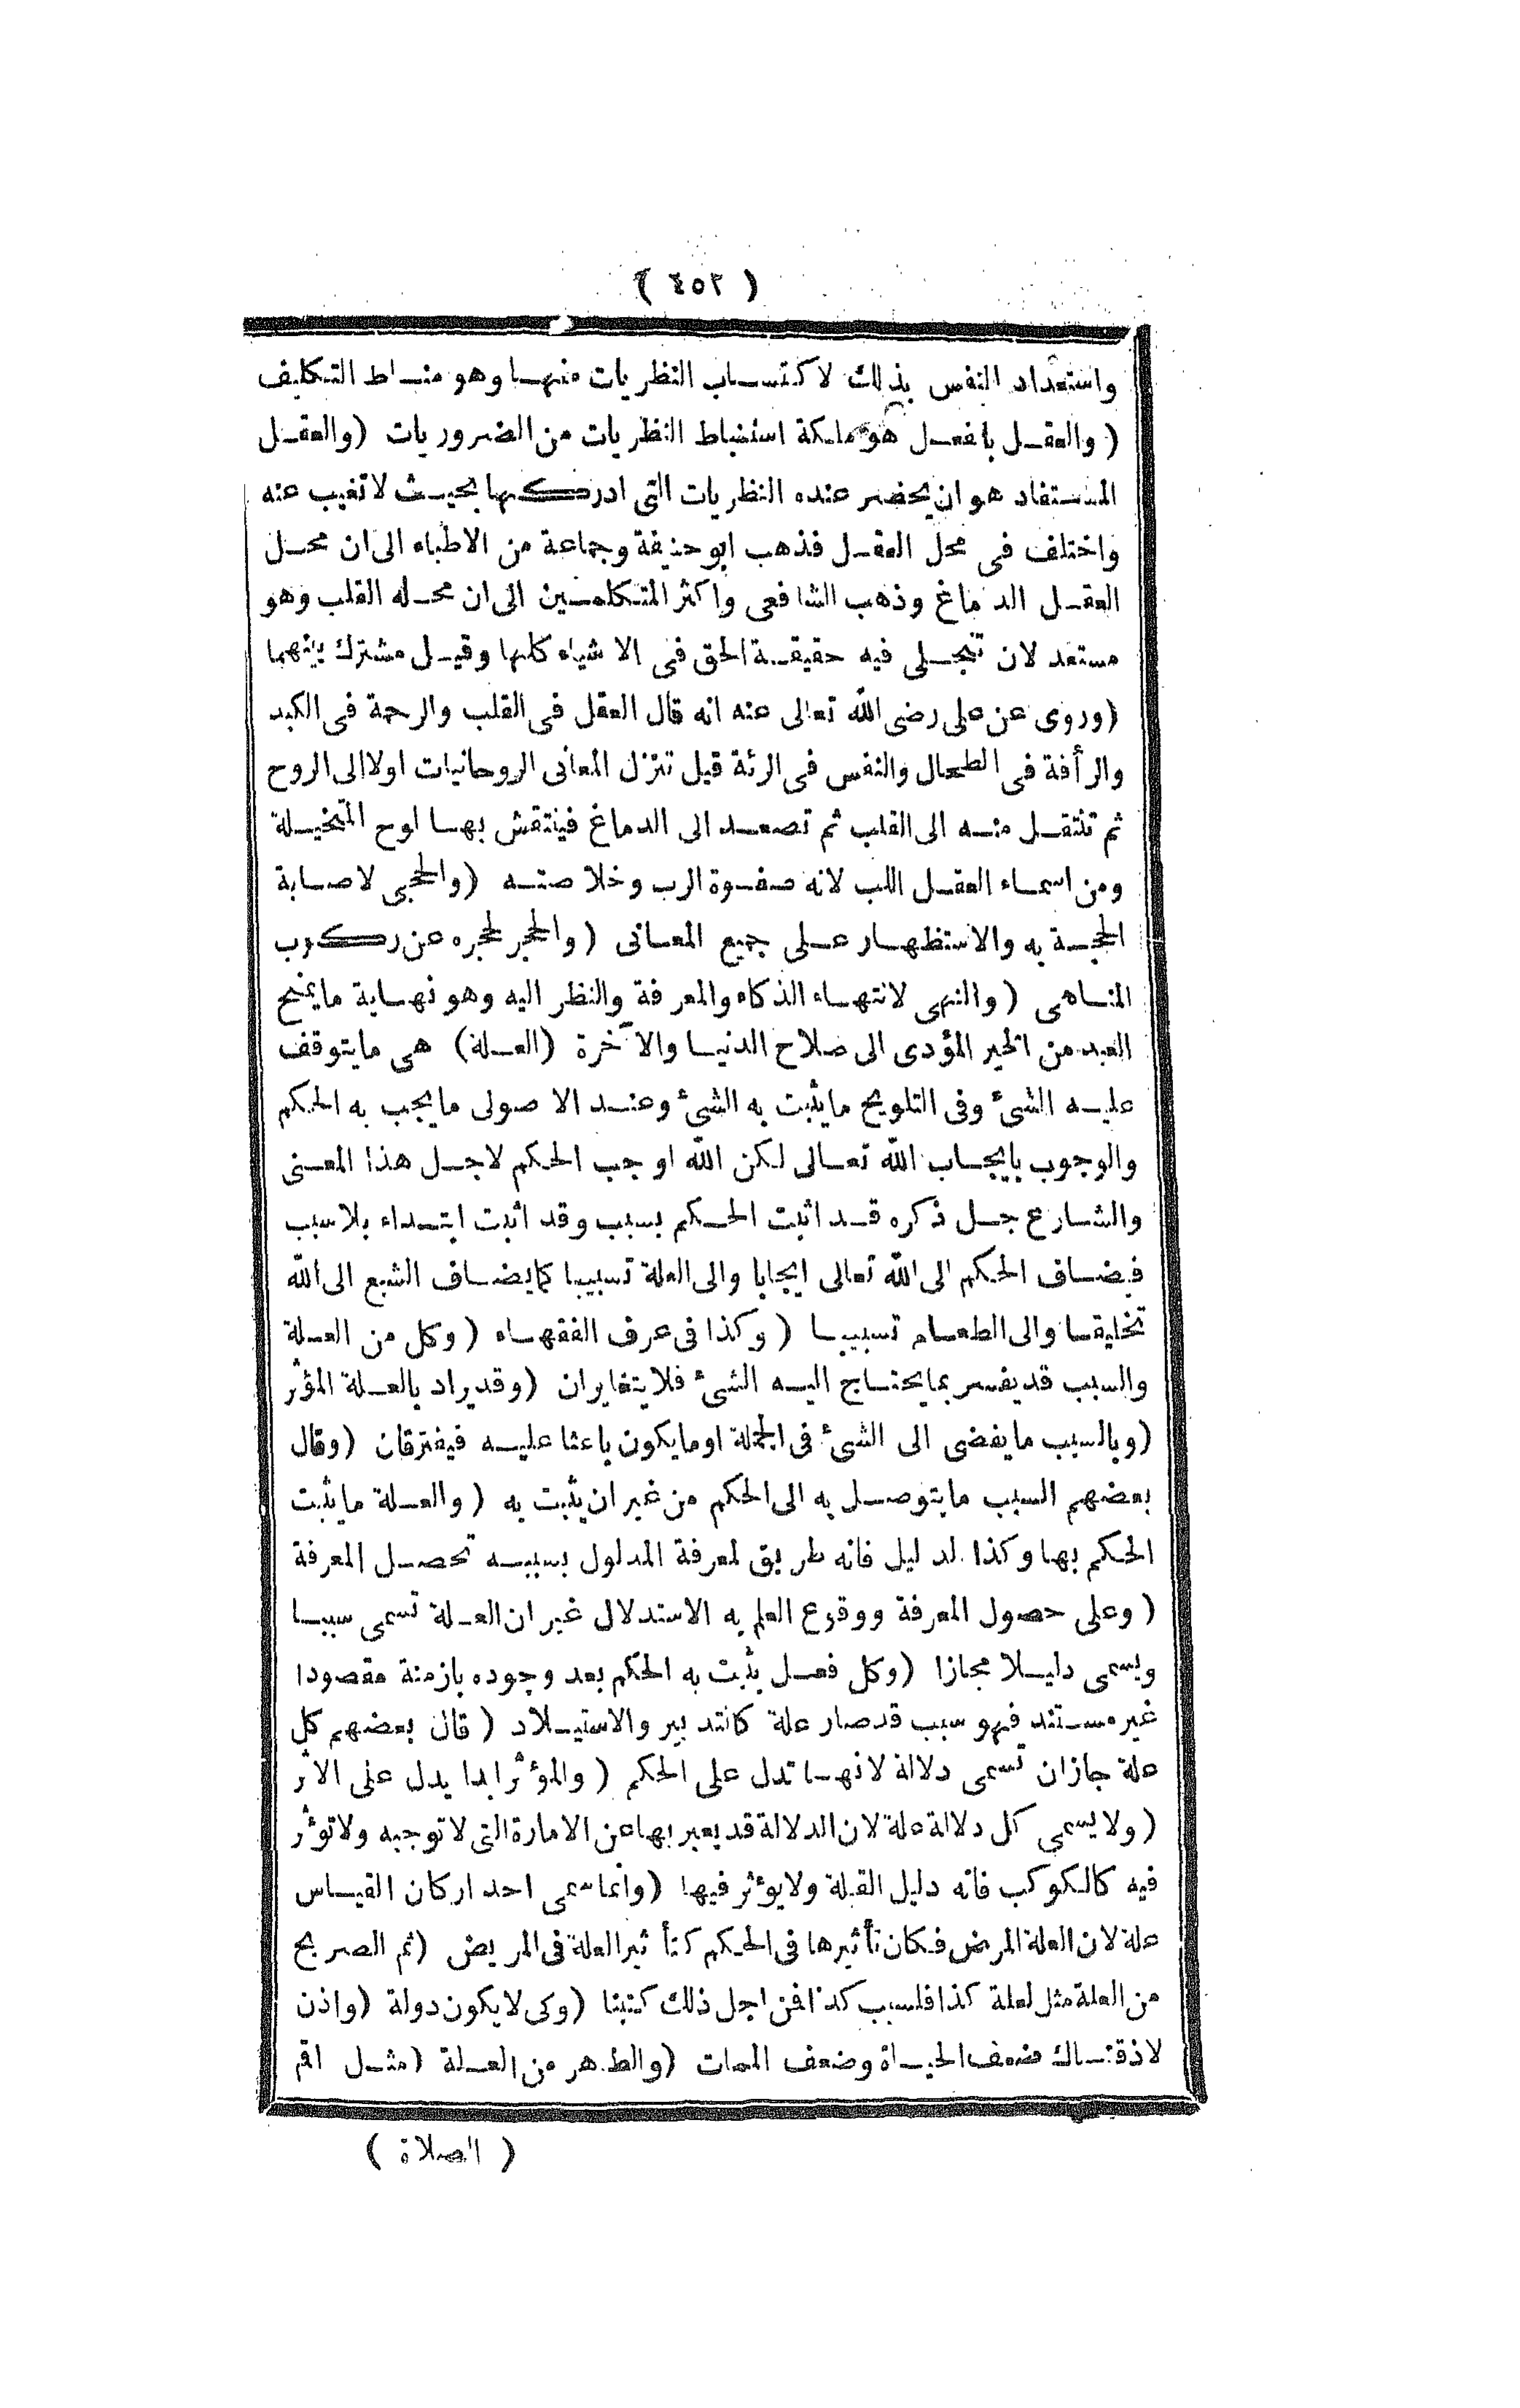 ( ٤٥٢ )
واستعداد النفس بذلك لاكتساب النظريات منها وهو مناط التكليف
( والعقل بالفعل هو ملكة استنباط النظريات من الضروريات ( والعقل
المستفاد هو ان يحضر عنده النظريات التى ادركها بحيث لا تغيب عنه
واختلف فى محل العقل فذهب ابو حنيفة وجماعة من الاطباء الى ان محل
العقل الدماغ وذهب الشافعى واكثر المتكلمين الى ان محله القلب وهو
مستعد لان تنجلى فيه حقيقة الحق فى الاشياء كلها وقيل مشترك بينهما
( وروى عن على رضى الله تعالى عنه انه قال العقل فى القلب والرحمة فى الكبد
والرأفة فى الطحال والنفس فى الرئة قيل تتنزل المعانى الروحانيات اولا الى الروح
ثم تنتقل منه الى القلب ثم تصعد الى الدماغ فينتقش بها لوح المتخيلة
ومن اسماء العقل اللب لانه صفوة الرب وخلاصته ( والحجى لاصابة
الحجة به والاستظهار على جميع المعانى ( والحجر لحجره عن ركوب
المناهى ( والنهى لانتهاء الذكاء والمعرفة والنظر اليه وهو نهاية ما يمنح
العبد من الخير المؤدى الى صلاح الدنيا والآخرة ( العلة ) هى ما يتوقف
عليه الشئ وفى التلويح ما يثبت به الشئ وعند الاصولى ما يجب به الحكم
والوجوب بايجاب الله تعالى لكن الله اوجب الحكم لاجل هذا المعنى
والشارع جل ذكره قد اثبت الحكم بسبب وقد اثبت ابتداء بلا سبب
فيضاف الحكم الى الله تعالى ايجابا والى العلة تسبيبا كما يضاف الشبع الى الله
تخليقا والى الطعام تسبيبا ( وكذا فى عرف الفقهاء ( وكل من العلة
والسبب قد يفسر بما يحتاج اليه الشئ فلا يتغايران ( وقد يراد بالعلة المؤثر
( وبالسبب ما يفضى الى الشئ فى الجملة او ما يكون باعثا عليه فيفترقان ( وقال
بعضهم السبب ما يتوصل به الى الحكم من غير ان يثبت به ( والعلة ما يثبت
الحكم بها وكذا الدليل فانه طريق لمعرفة المدلول بسببه تحصل المعرفة
( وعلى حصول المعرفة ووقوع العلم به الاستدلال غير ان العلة تسمى سببا
ويسمى دليلا مجازا ( وكل فعل يثبت به الحكم بعد وجوده بازمنة مقصودا
غير مستند فهو سبب قد صار علة كالتدبير والاستيلاد ( قال بعضهم كل
علة جاز ان تسمى دلالة لانها تدل على الحكم ( والمؤثر ابدا يدل على الاثر
( ولا يسمى كل دلالة علة لان الدلالة قد يعبر بها عن الامارة التى لا توجبه ولا تؤثر
فيه كالكوكب فانه دليل القبلة ولا يؤثر فيها ( وانما سمى احد اركان القياس
علة لان العلة المرض فكان تأثيرها فى الحكم كتأثير العلة فى المريض ( ثم الصريح
من العلة مثل لعلة كذا فلسبب كذا فمن اجل ذلك كتبنا ( وكى لا يكون دولة ( واذن
لاذقناك ضعف الحياة وضعف الممات ( والظاهر من العلة ( مثل اقم
( الصلاة )